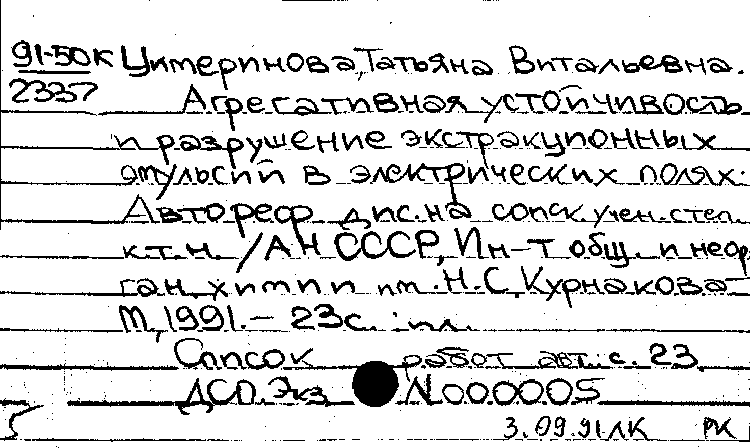 91-50к Цимеринова, Татьяна Витальевна.
2337 Агрегативная устойчивость
и разрушение экстракционных
эмульсий в электрических полях:
Автореф. дис. на соиск. учен. степ.
к.т.н. /АН СССР, Ин-т общ. и неор
ган. химии им. Н.С. Курнакова-
М, 1991. - 23с. : ил.
Список работ авт.: с. 23.
ДСП. Экз N000005
3.09.91 ЛК РК